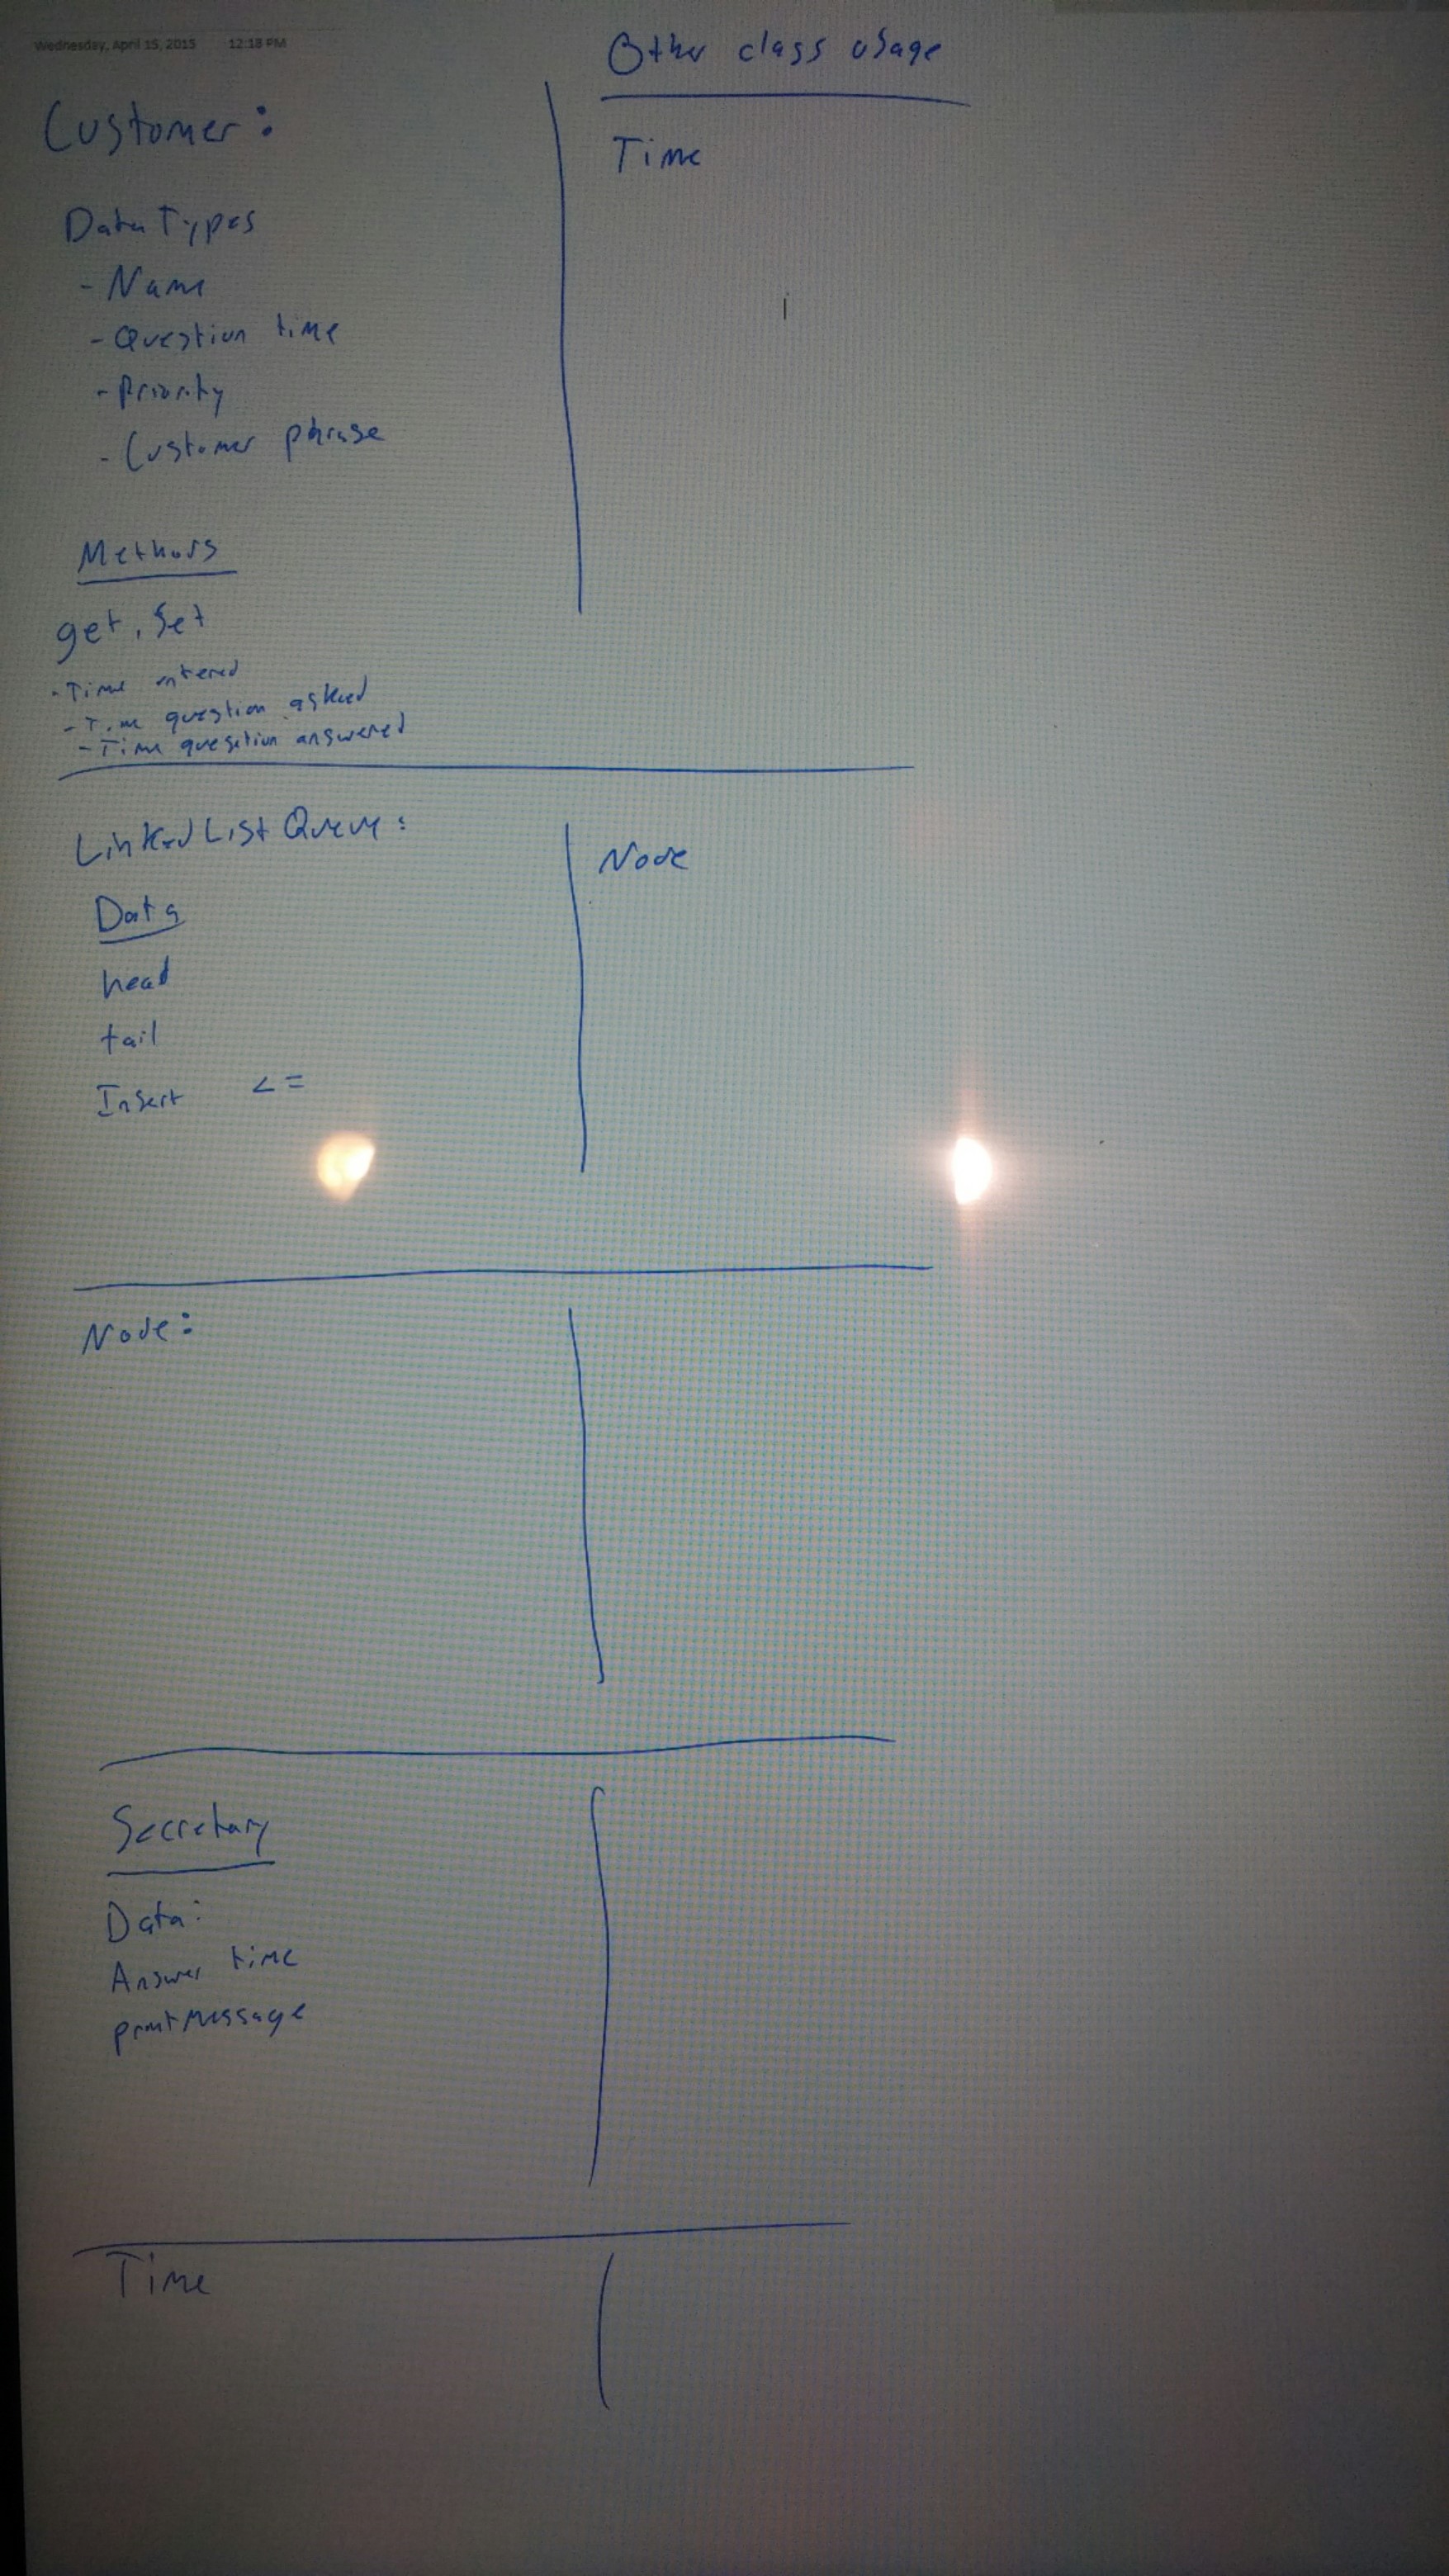 Wednesday, April 15, 2015 12:18 PM
Other class usage
Customer:
Time
Data Types
- Name
- Question time
- Priority
- Customer phrase
Methods
get, set
- Time entered
- Time question asked
- Time quesition answered
Linked List Queue:
Node
Data
head
tail
Insert <=
Node:
Secretary
Data:
Answer time
print Message
Time